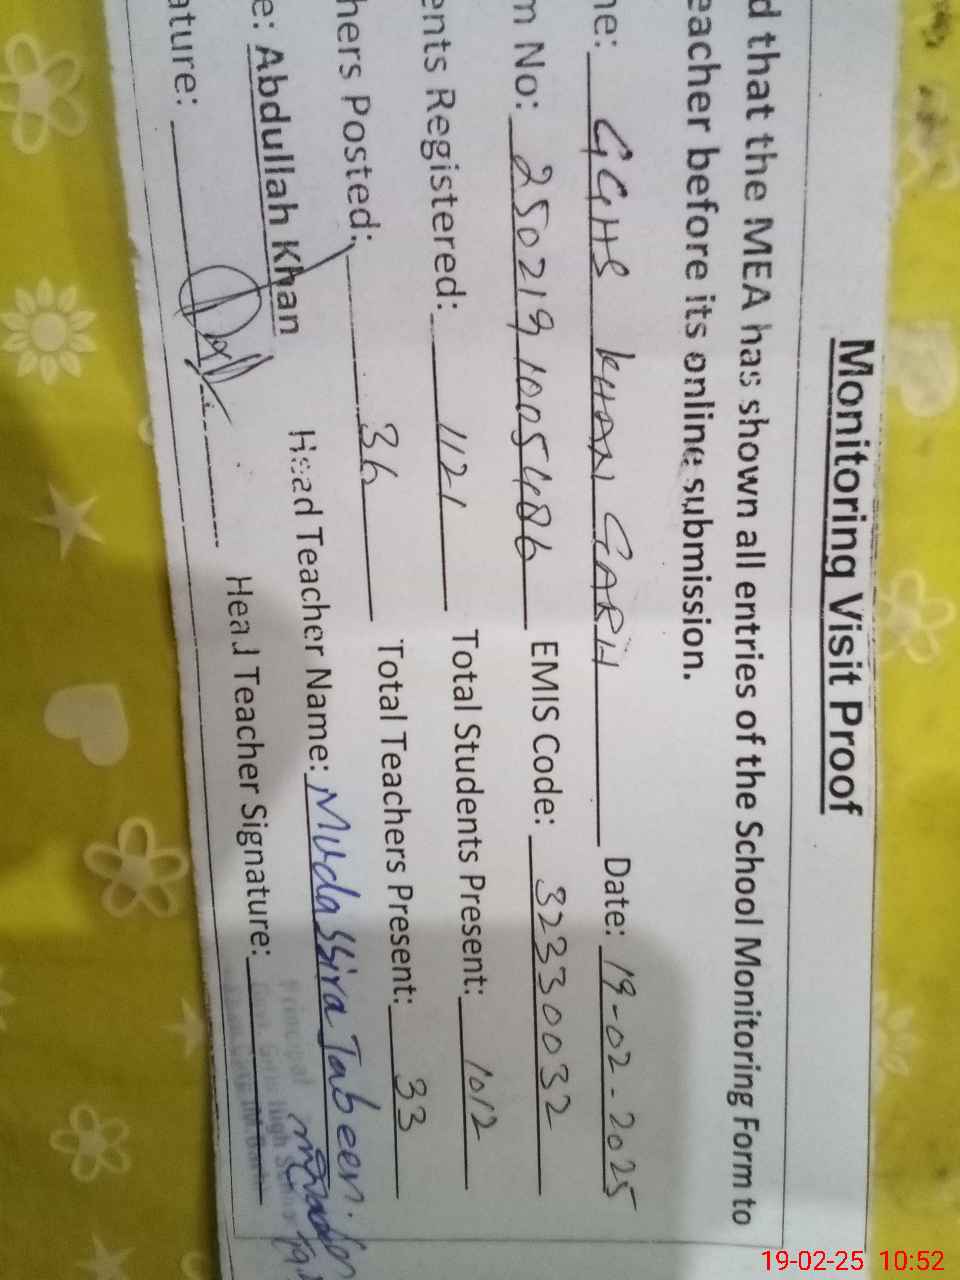 Monitoring Visit Proof
d that the MEA has shown all entries of the School Monitoring Form to
eacher before its online submission.
ne: GGHS KHAN GARH Date: 19-02-2025
m No: 250219 1005486 EMIS Code: 32330032
ents Registered: 1121 Total Students Present: 1012
hers Posted: 36 Total Teachers Present: 33
e: Abdullah Khan Head Teacher Name: Mudassira Tabeen.
ature: Head Teacher Signature:
Principal
19-02-25 10:52